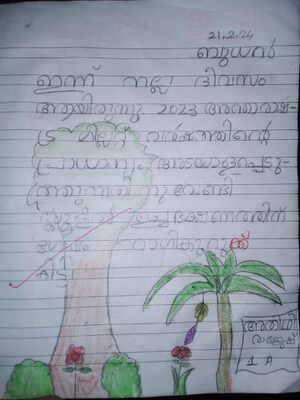 21.2.24
ബുധൻ
ഇന്ന് നല്ല ദിവസം
ആയിരുന്നു. 2023 അന്താരാഷ്-
ട്ര മില്ലറ്റ് വർഷത്തിന്റെ
പ്രാധാന്യം അടയാളപ്പെടു-
ത്തുന്നതിനു വേണ്ടി
സ്കൂളിൽ ഉച്ച ഭക്ഷണത്തിന്
ശേഷം റാഗികുറുക്ക്
കിട്ടി
അതിഥി
രാജേഷ്
1 A